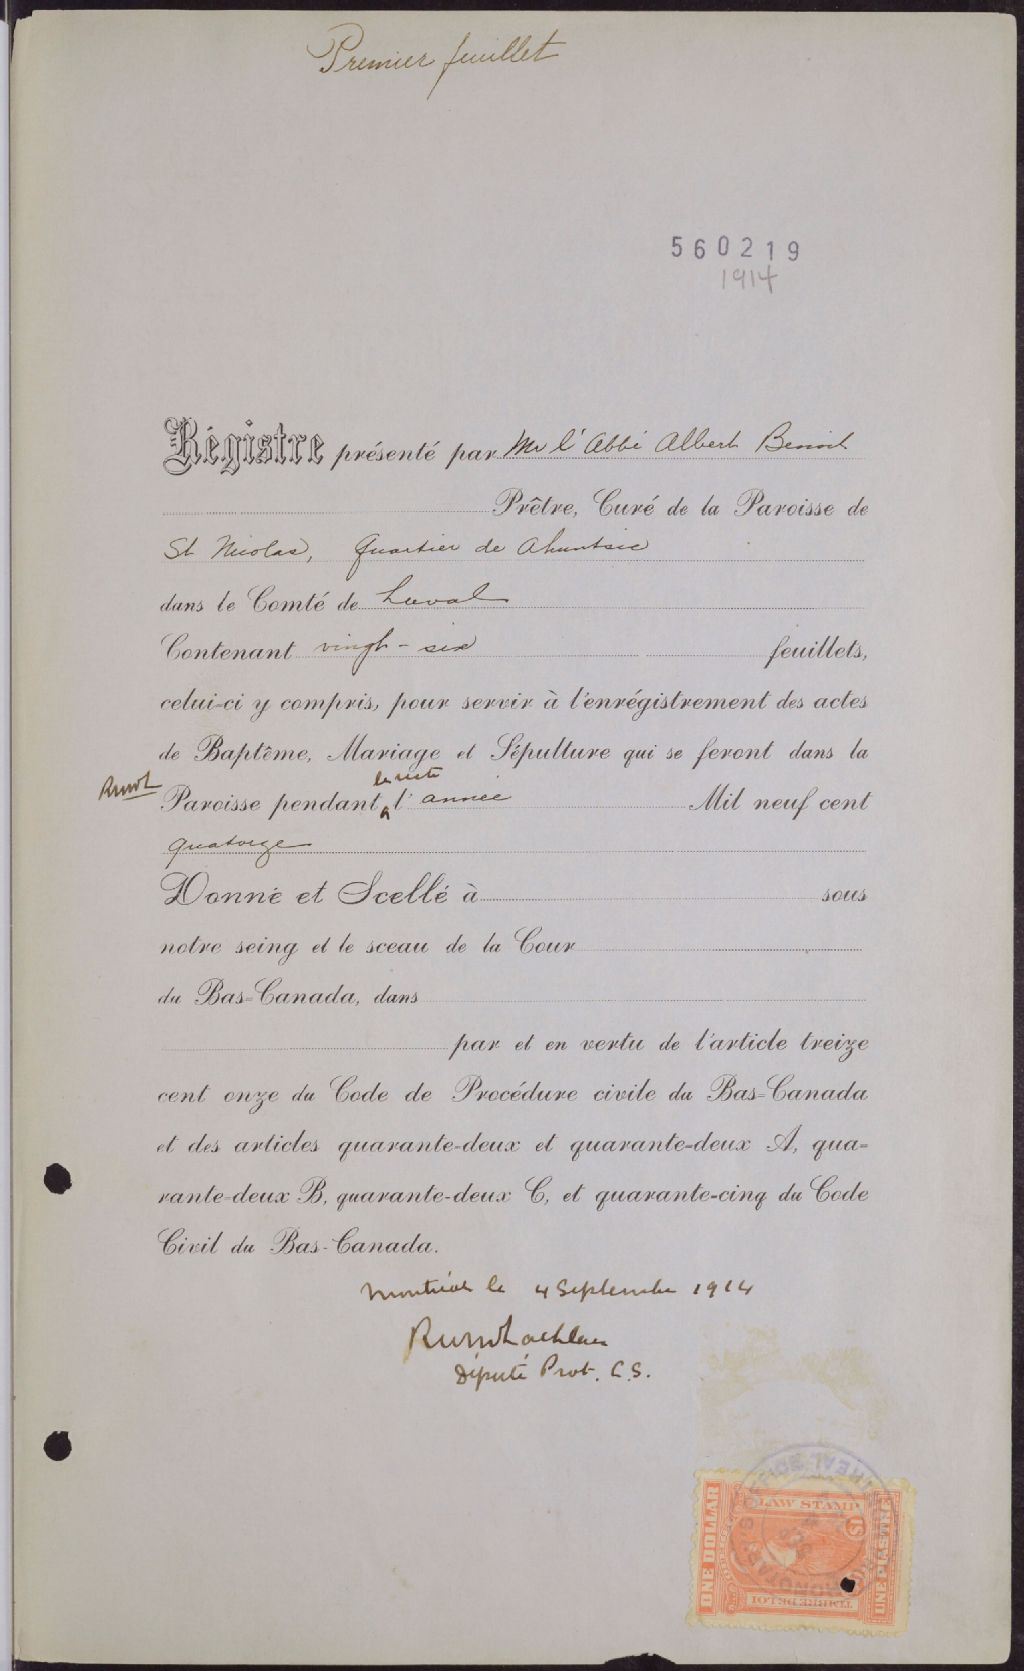 Premier feuillet
560219
1914
Régistre présenté par Mr l'Abbé Albert Benoit
Prêtre, Curé de la Paroisse de
St Nicolas, Quartier de Ahuntsic
dans le Comté de Laval
Contenant vingt-six feuillets,
celui-ci y compris, pour servir à l'enrégistrement des actes
de Baptême, Mariage et Sépulture qui se feront dans la
le reste
Paroisse pendant l'année Mil neuf cent
quatorze
Donné et Scellé à sous
notre seing et le sceau de la Cour
du Bas-Canada, dans
par et en vertu de l'article treize
cent onze du Code de Procédure civile du Bas-Canada
et des articles quarante-deux et quarante-deux A, qua-
rante-deux B, quarante-deux C, et quarante-cinq du Code
Civil du Bas-Canada.
Montréal le 4 Septembre 1914
Député Prot. C.S.
ONE DOLLAR
LAW STAMP
$1
UNE PIASTRE
TIMBRE DE LOI